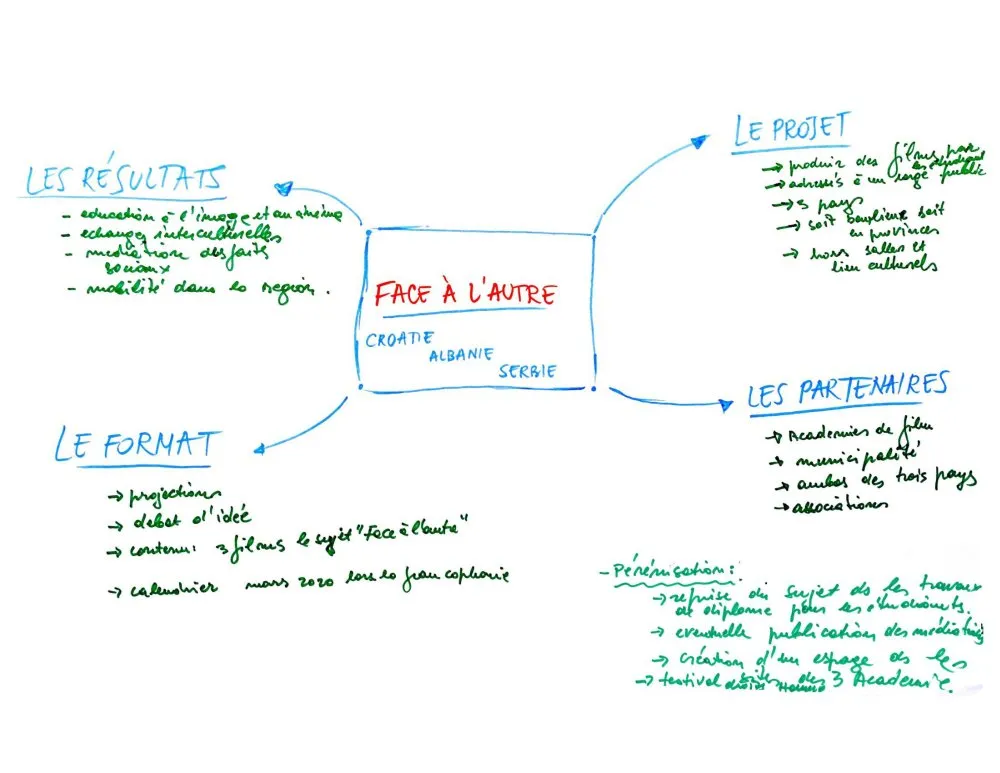 LES RÉSULTATS
- education à l'image et au cinéma
- echanges interculturelles
- mediation des faits
sociaux
- mobilité dans la region.
LE PROJET
→ produir des films par
les étudiants
→ adressés à un large public
→ 3 pays
→ soit banlieux soit
en provinces
→ hors salles et
lieu culturels
FACE À L'AUTRE
CROATIE
ALBANIE
SERBIE
LE FORMAT
→ projections
→ debat d'idée
→ contenu: 3 films le sujet "Face à l'autre"
→ calendrier mars 2020 lors la francophonie
LES PARTENAIRES
→ Academies de film
→ municipalité
→ ambas des trois pays
→ associations
- Pérénisation:
→ reprise du sujet ds les travaux
de diplome pour les étudiants.
→ eventuelle publication des médiations
→ création d'un espage ds les
sites des 3 Academie.
→ festival droits Homme